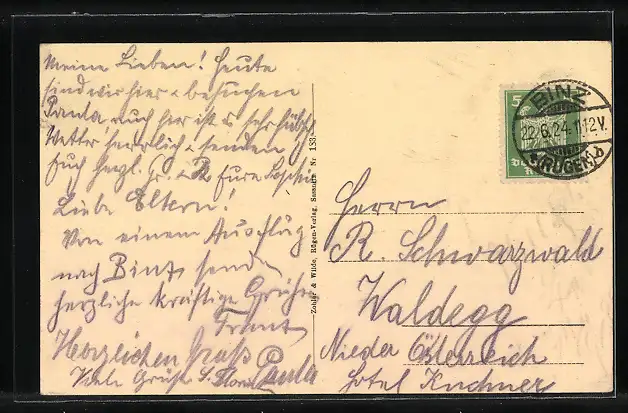 Meine Lieben! Heute
sind wir hier u. besuchen
Paula auch hier ist es sehr hübsch
Wetter herrlich u. senden
Euch herzl. Gr. u. K. Eure
Liebe Eltern!
Von einem Ausflug
nach Binz sende
herzliche kräftige Grüße
Franz
Herzlichen Gruß
Viele Grüße Paula
Zobler & Wilde, Rügen-Verlag, Sassnitz Nr. 153
5
BINZ
22.6.24. 11-12 V.
(RÜGEN) b
Herrn
R. Schwarzwald
Waldegg
Nieder Österreich
Hotel Kirchner